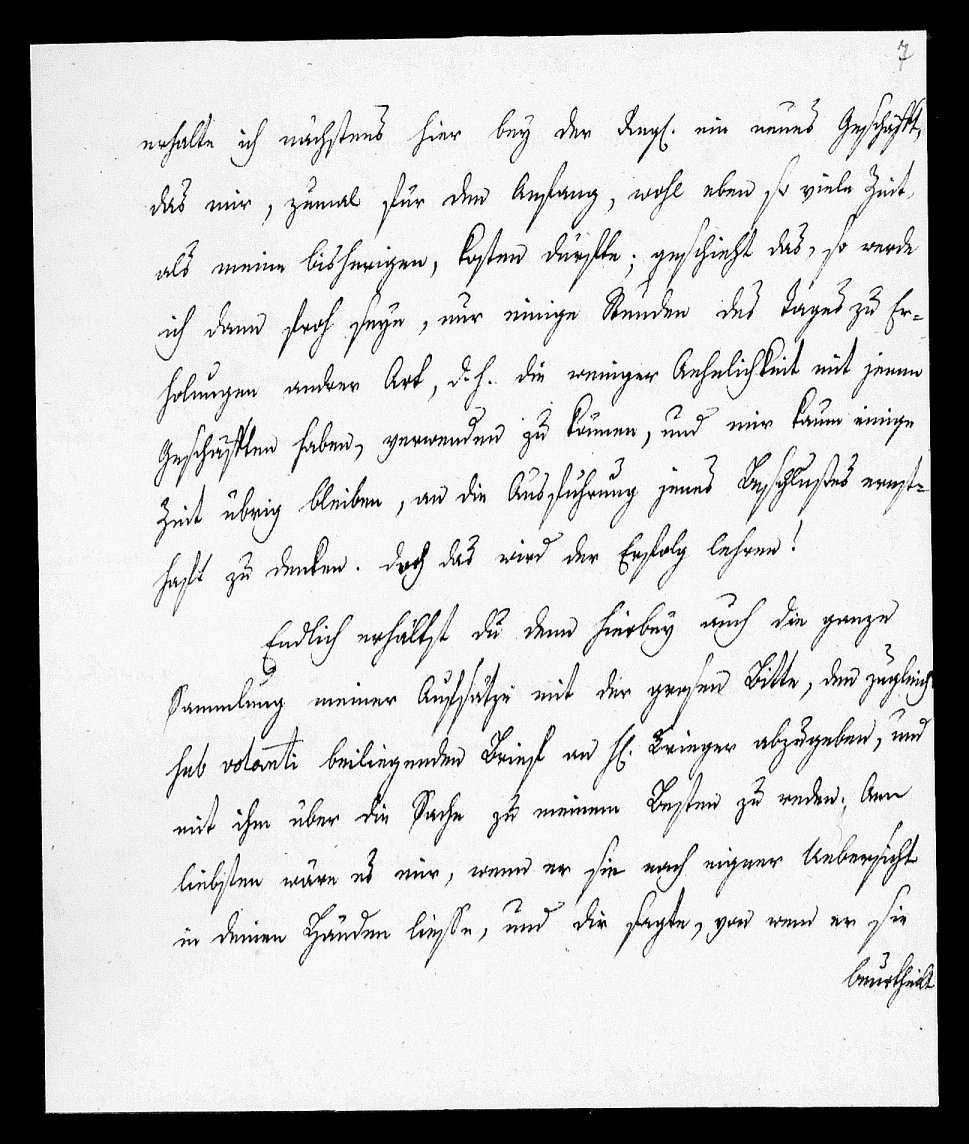 7
erhalte ich nächstens hier bey der Regs. ein neues Geschäfft,
das mir, zumal für den Anfang, wohl eben so viele Zeit,
als meine bisherigen, kosten dürffte; geschieht das, so werde
ich dann froh seyn, nur einige Stunden des Tages zu Er=
holungen andrer Art, d. h. die weniger Aehnlichkeit mit jenen
Geschäfften haben, verwenden zu können, und mir kaum einige
Zeit übrig bleiben, an die Ausführung jenes Beschlußes ernst=
haft zu denken. Doch das wird der Erfolg lehren!
Endlich erhältst du denn hierbey auch die ganze
Sammlung meiner Aufsätze mit der grosen Bitte, den zugleich
sub volanti beiliegenden Brief an H. Krieger abzugeben, und
mit ihm über die Sache zu meinem Besten zu reden; Am
liebsten wäre es mir, wenn er sie nach eigner Uebersicht
in deinen Händen liesse, und dir sagte, von wem er sie
beurtheilt